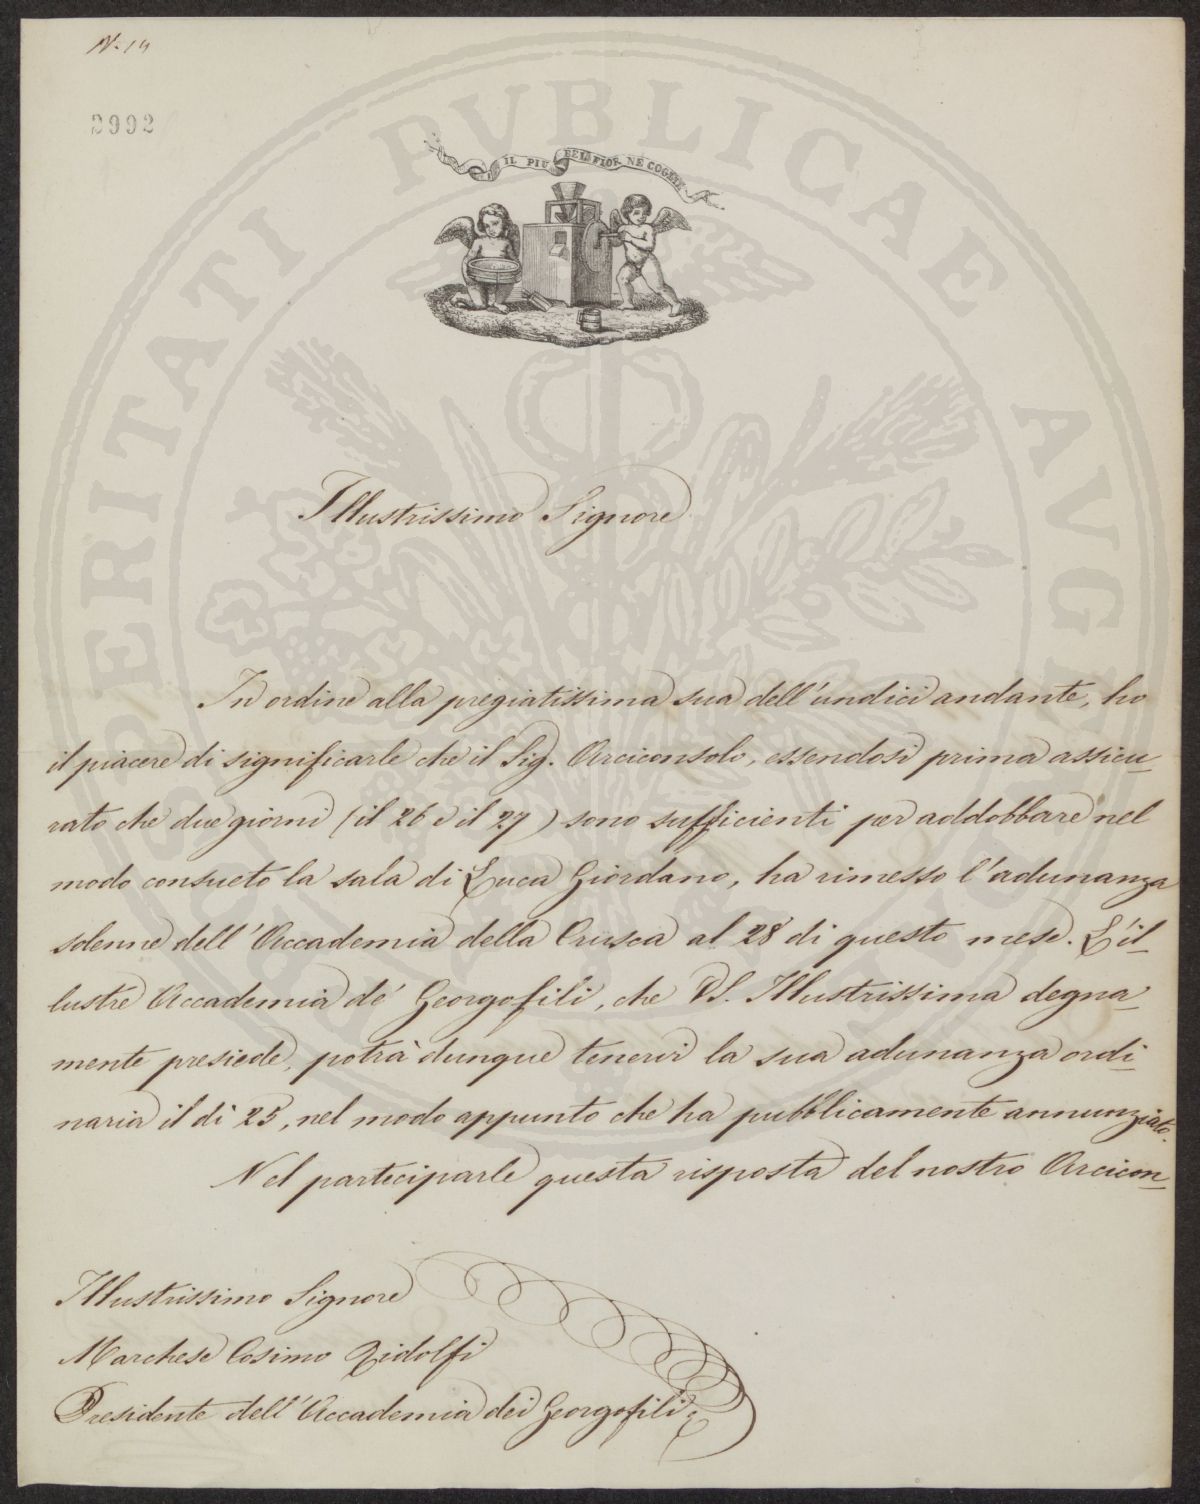 N. 14
2992
IL PIÙ BEL FIOR NE COGLIE
Illustrissimo Signore
In ordine alla pregiatissima sua dell'undici andante, ho
il piacere di significarle che il Sig. Arciconsolo, essendosi prima assicu-
rato che due giorni (il 26 e il 27) sono sufficienti per addobbare nel
modo consueto la sala di Luca Giordano, ha rimesso l'adunanza
solenne dell'Accademia della Crusca al 28 di questo mese. L'il-
lustre Accademia de' Georgofili, che V.S. Illustrissima degna-
mente presiede, potrà dunque tenervi la sua adunanza ordi-
naria il dì 25, nel modo appunto che ha pubblicamente annunziato.
Nel participarle questa risposta del nostro Arcicon-
Illustrissimo Signore
Marchese Cosimo Ridolfi
Presidente dell'Accademia dei Georgofili.
PROSPERITATI PVBLICAE AVGENDAE